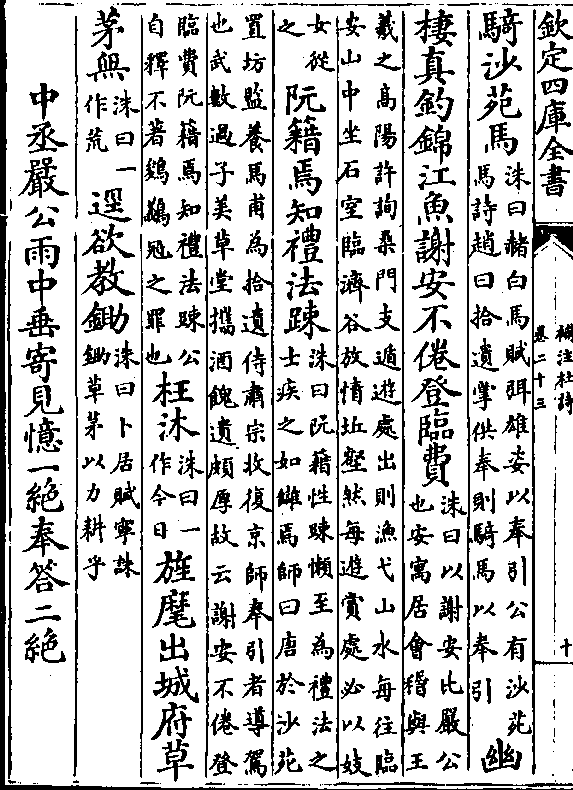 欽定四庫全書
補注杜詩
卷二十三
十
騎沙苑馬洙曰赭白馬賦弭雄姿以奉引公有沙苑馬詩趙曰拾遺掌供奉則騎馬以奉引幽
棲真釣錦江魚謝安不倦登臨費洙曰以謝安比嚴公也安寓居會稽與王
羲之高陽許詢桑門支遁遊處出則漁弋山水每往臨
安山中坐石室臨濬谷放情丘壑然每遊賞處必以妓
女從之阮籍焉知禮法疎洙曰阮籍性疎懶至為禮法之士疾之如讎焉師曰唐於沙苑
置坊監養馬甫為拾遺侍肅宗收復京師奉引者導駕
也武數過子美草堂攜酒餽遺頗厚故云謝安不倦登
臨費阮籍焉知禮法疎公自釋不著鵔鸃冠之罪也枉沐洙曰一作今日旌麾出城府草
茅無洙曰一作荒逕欲教鋤洙曰卜居賦寧誅鋤草茅以力耕乎
中丞嚴公雨中垂寄見憶一絕奉答二絕